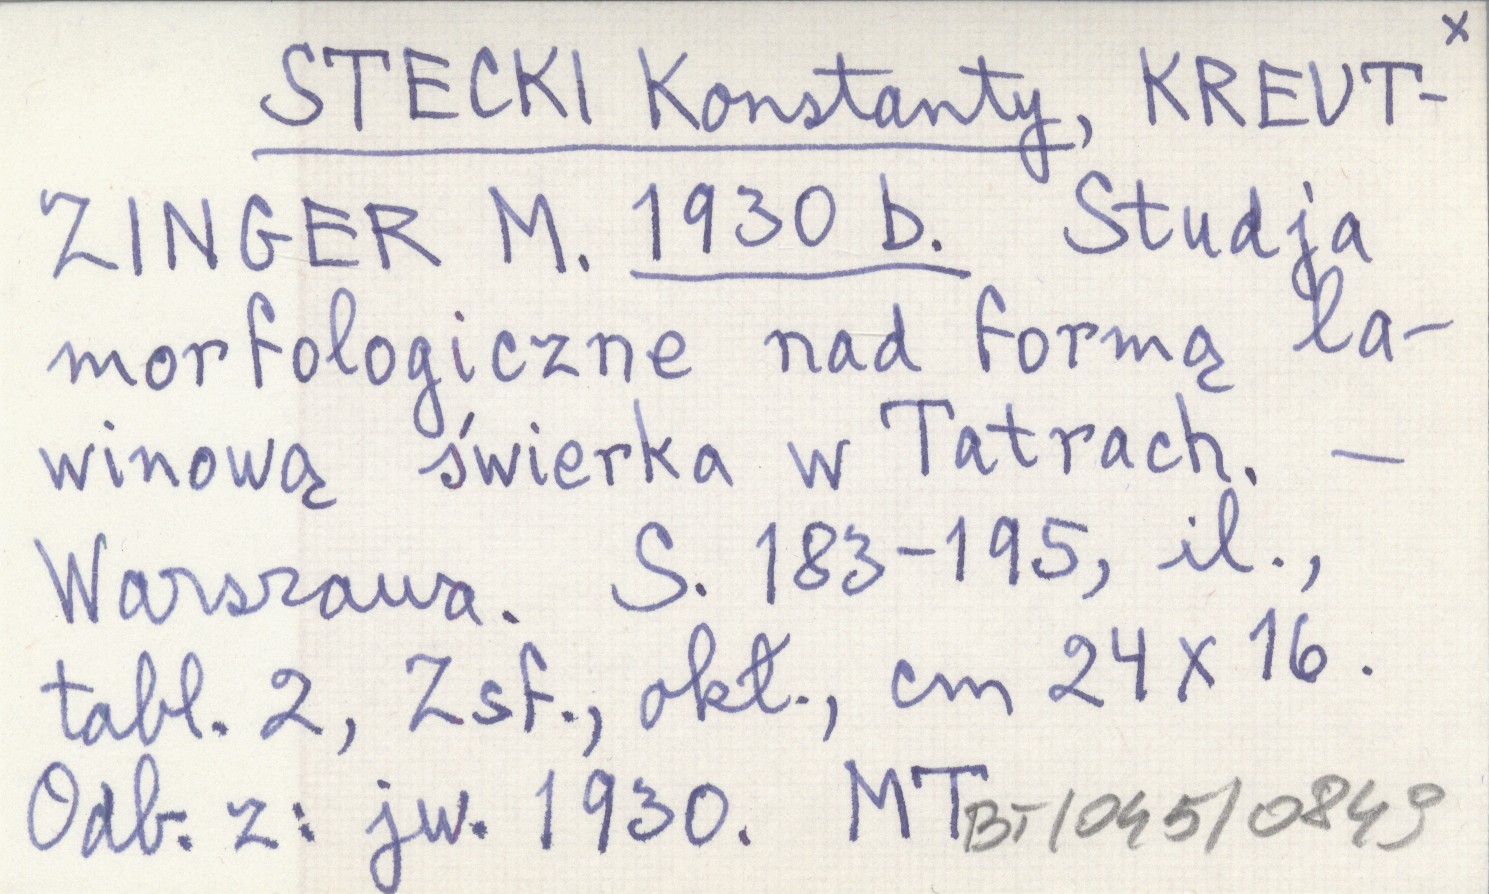 x
STECKI Konstanty, KREUT-
ZINGER M. 1930 b. Studja
morfologiczne nad formą la-
winową świerka w Tatrach. —
Warszawa. S. 183-195, il.,
tabl. 2, Zsf., okł., cm 24 x 16.
Odb. z: jw. 1930. MT BT/045/0849